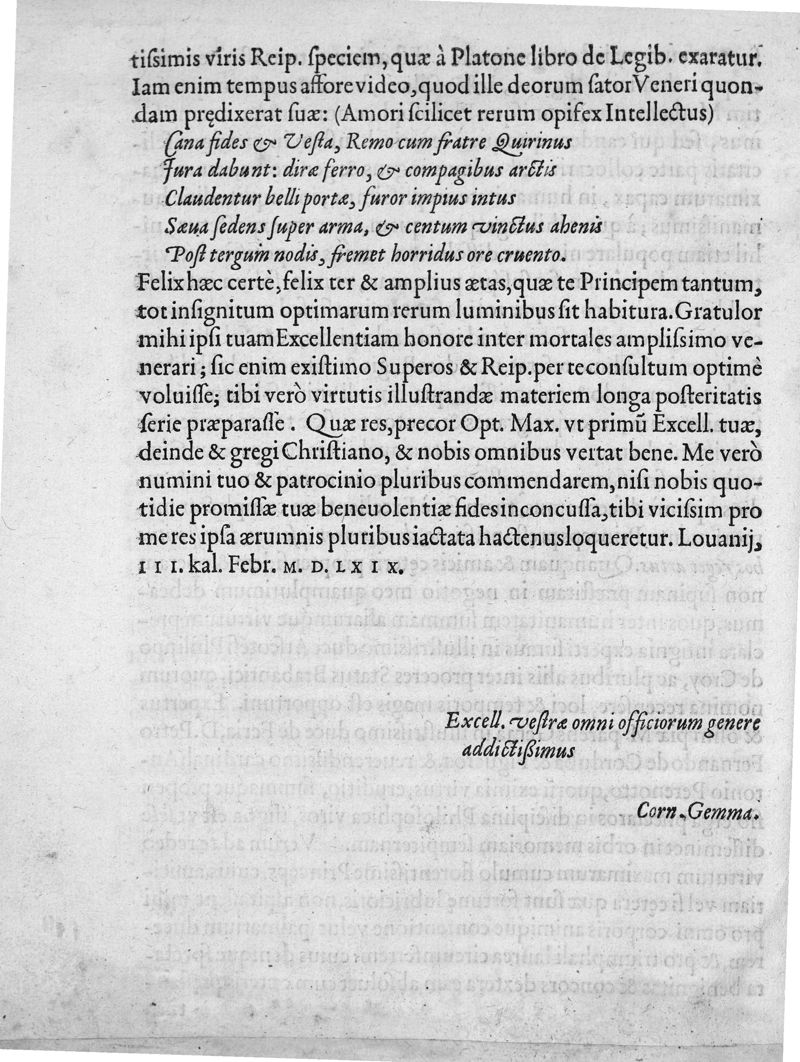 tiſsimis viris Reip. ſpeciem, quæ à Platone libro de Legib. exaratur.
Iam enim tempus affore video, quod ille deorum ſator Veneri quon-
dam prędixerat ſuæ: (Amori ſcilicet rerum opifex Intellectus)
Cana fides & Veſta, Remo cum fratre Quirinus
Jura dabunt: diræ ferro, & compagibus arctis
Claudentur belli portæ, furor impius intus
Sæua ſedens ſuper arma, & centum vinctus ahenis
Poſt tergum nodis, fremet horridus ore cruento.
Felix hæc certè, felix ter & amplius ætas, quæ te Principem tantum,
tot inſignitum optimarum rerum luminibus ſit habitura. Gratulor
mihi ipſi tuam Excellentiam honore inter mortales ampliſsimo ve-
nerari; ſic enim exiſtimo Superos & Reip. per te conſultum optimè
voluiſſe; tibi verò virtutis illuſtrandæ materiem longa poſteritatis
ſerie præparaſſe. Quæ res, precor Opt. Max. vt primũ Excell. tuæ,
deinde & gregi Chriſtiano, & nobis omnibus vertat bene. Me verò
numini tuo & patrocinio pluribus commendarem, niſi nobis quo-
tidie promiſſæ tuæ beneuolentiæ fides inconcuſſa, tibi viciſsim pro
me res ipſa ærumnis pluribus iactata hactenus loqueretur. Louanij,
III. kal. Febr. M. D. LXIX.
Excell. veſtræ omni officiorum genere
addictißimus
Corn. Gemma.